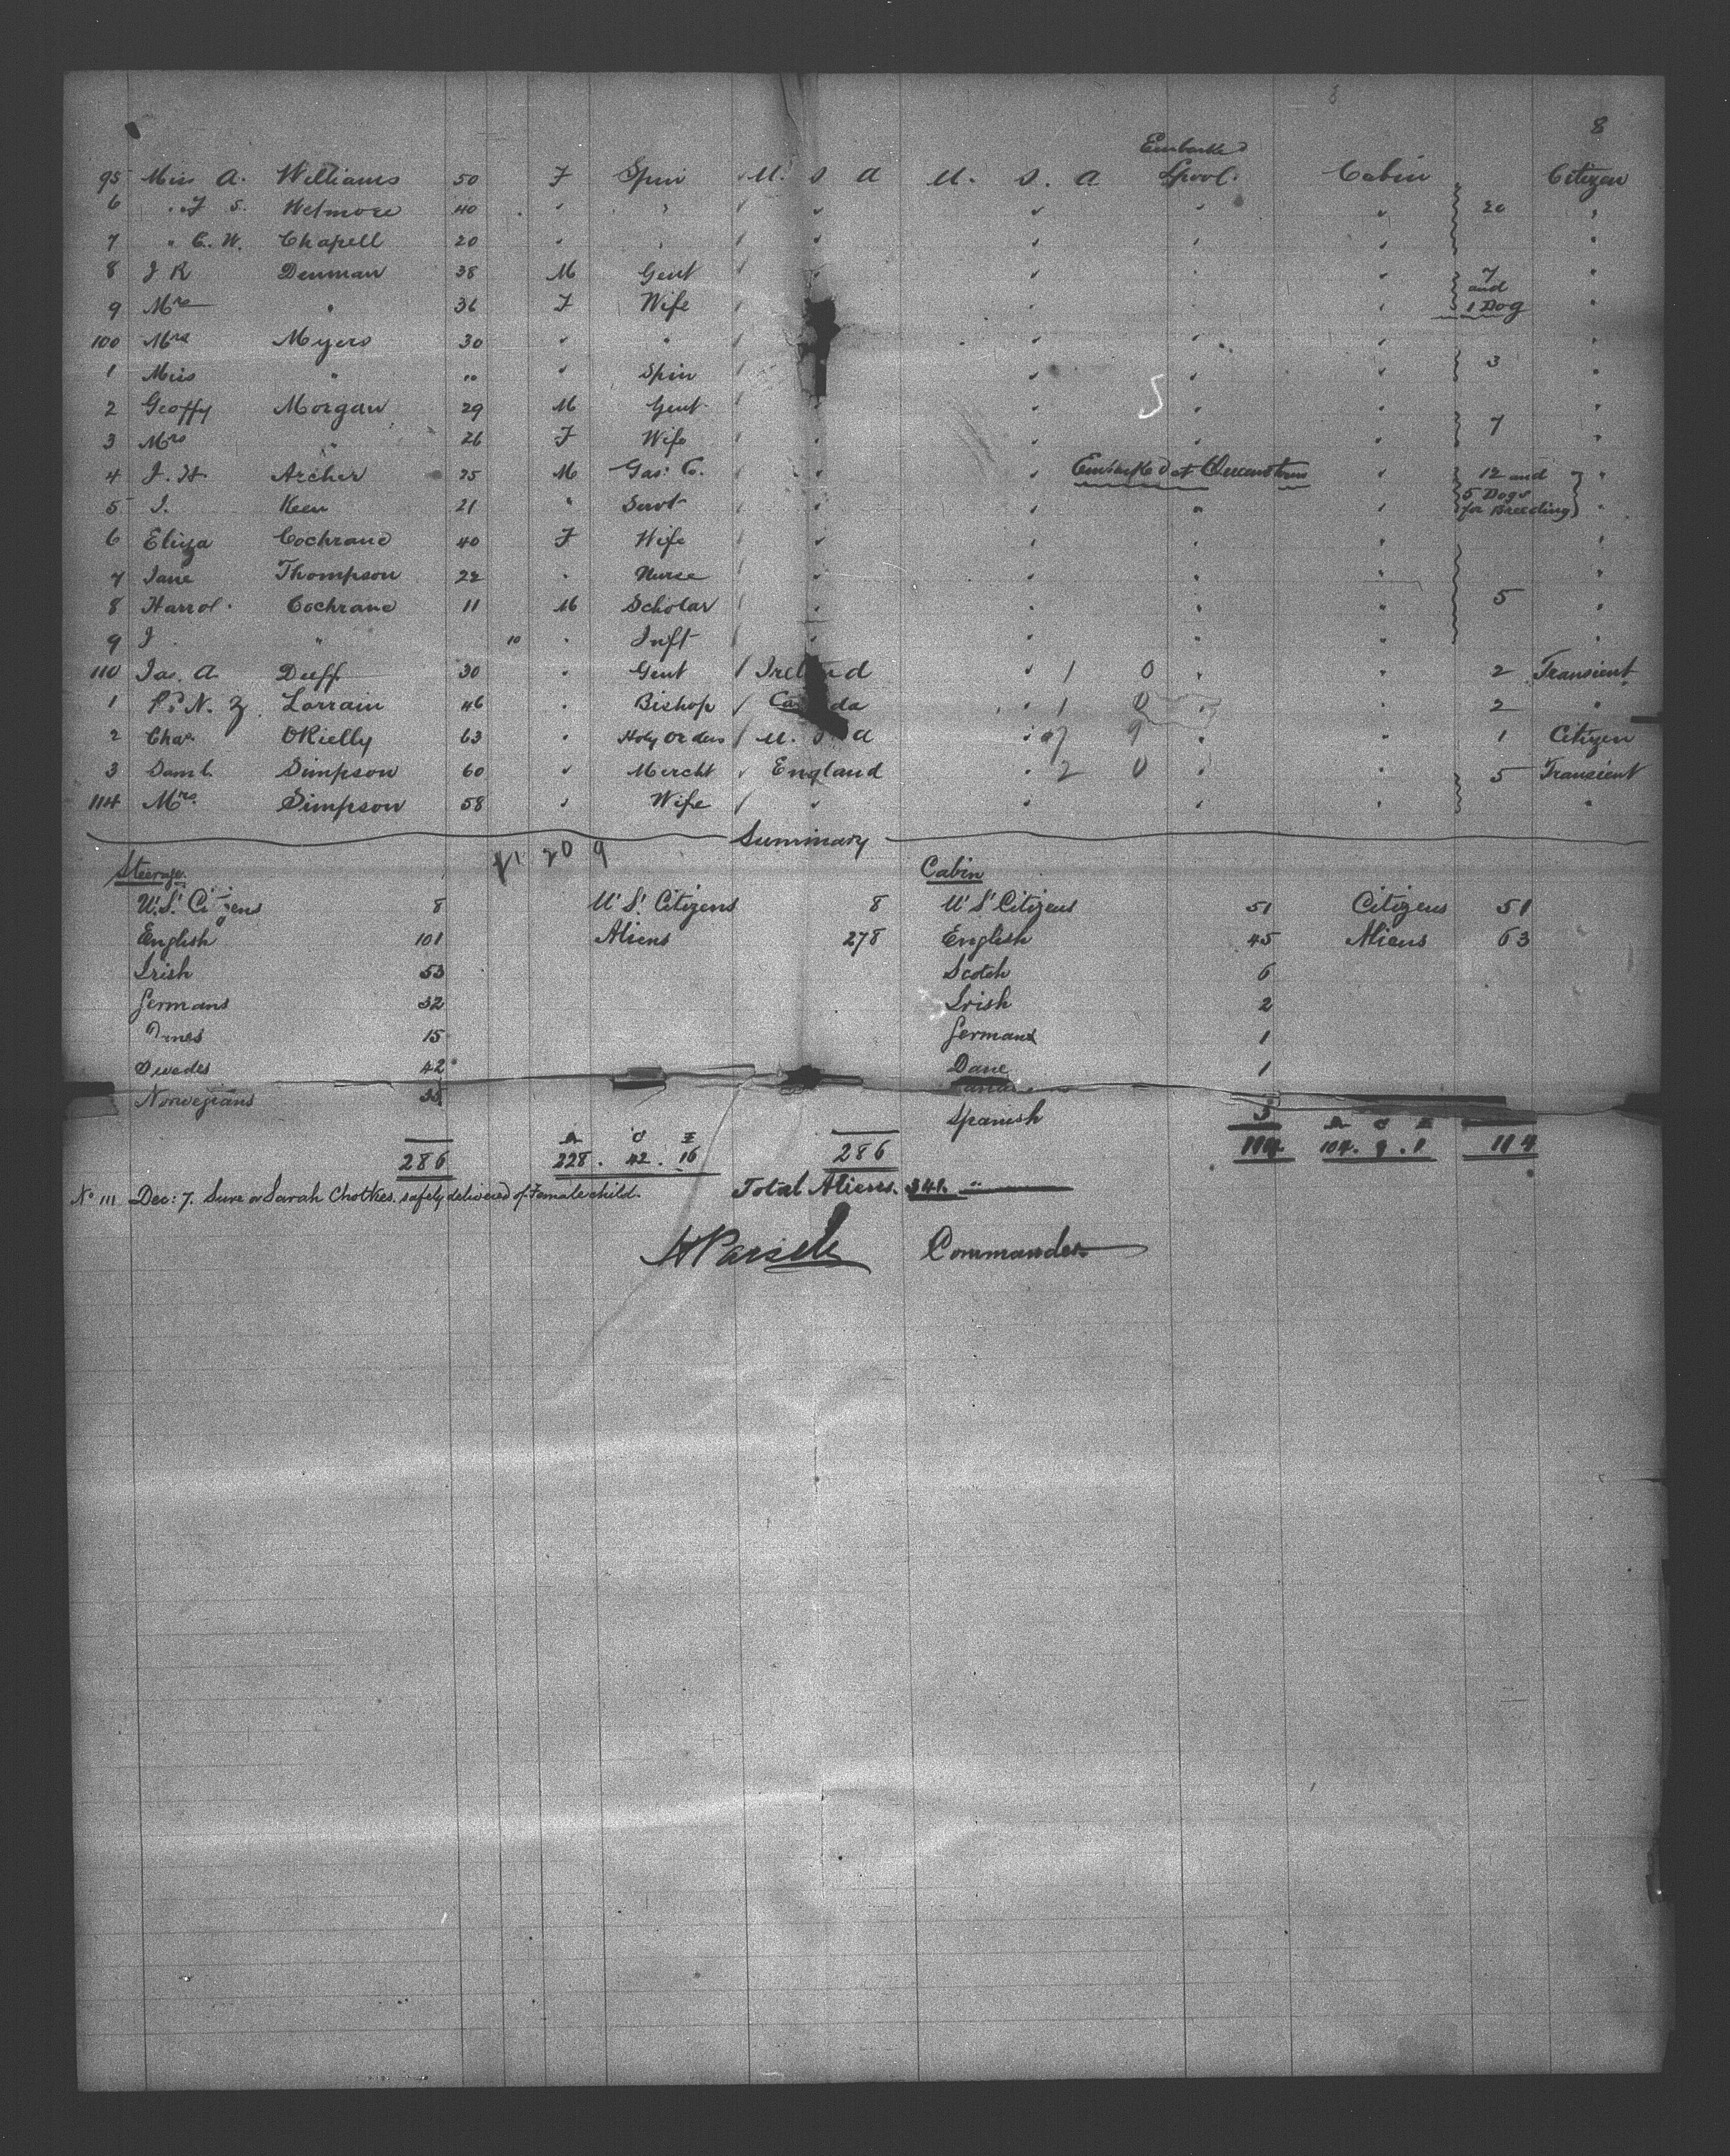 8
Embarked
95 Miss A. Williams 50 F Spin U. S A U. S. A Lpool. Cabin Citizen
6 " F S. Wetmore 40 " " " " " " 20 "
7 " C. W. Chapell 20 " " " " " " "
8 J R Denman 38 M Gent " " " " 7 "
and
9 Mrs " 36 F Wife " " " " 1 Dog "
100 Mrs Myers 30 " " " " " "
1 Miss " " " Spin " " " 3 "
2 Geoffy Morgan 29 M Gent " " " " "
3 Mrs " 26 F Wife " " " " 7 "
4 J. H. Archer 25 M Gas: Co. " " Embarked at Queenstown " 12 and "
5 Dogs
5 J. Keen 21 " Servt " " " " for Breeding "
6 Eliza Cochrane 40 F Wife " " " " "
7 Jane Thompson 22 " Nurse " " " " "
8 Harrol. Cochrane 11 M Scholar " " " " 5 "
9 J " 10 " Inft " " " " "
110 Jas. A. Duff 30 " Gent Ireland " 1 0 " " 2 Transient
1 N. Z. Lorrain 46 " Bishop Canada " 1 0 " " 2 "
2 Chas. ORielly 63 " Holy Orders U. S A " 7 9 " " 1 Citizen
3 Saml. Simpson 60 " Mercht England " 2 0 " " 5 Transient
114 Mrs. Simpson 58 " Wife " " " " "
Summary
20 9
Steerage. Cabin
U.S. Citizens 8 U.S. Citizens 8 U S Citizens 51 Citizens 51
English 101 Aliens 278 English 45 Aliens 63
Irish 53 Scotch 6
Germans 32 Irish 2
Danes 15 German 1
Swedes 42 Dane 1
Norwegians 35
Spanish
A C I A C I
286 228. 42. 16 286 114 104. 9. 1 114
No 111 Dec: 7. Sure or Sarah Chotkes. safely delivered of Female child. Total Aliens. 341.
H Parsell Commander